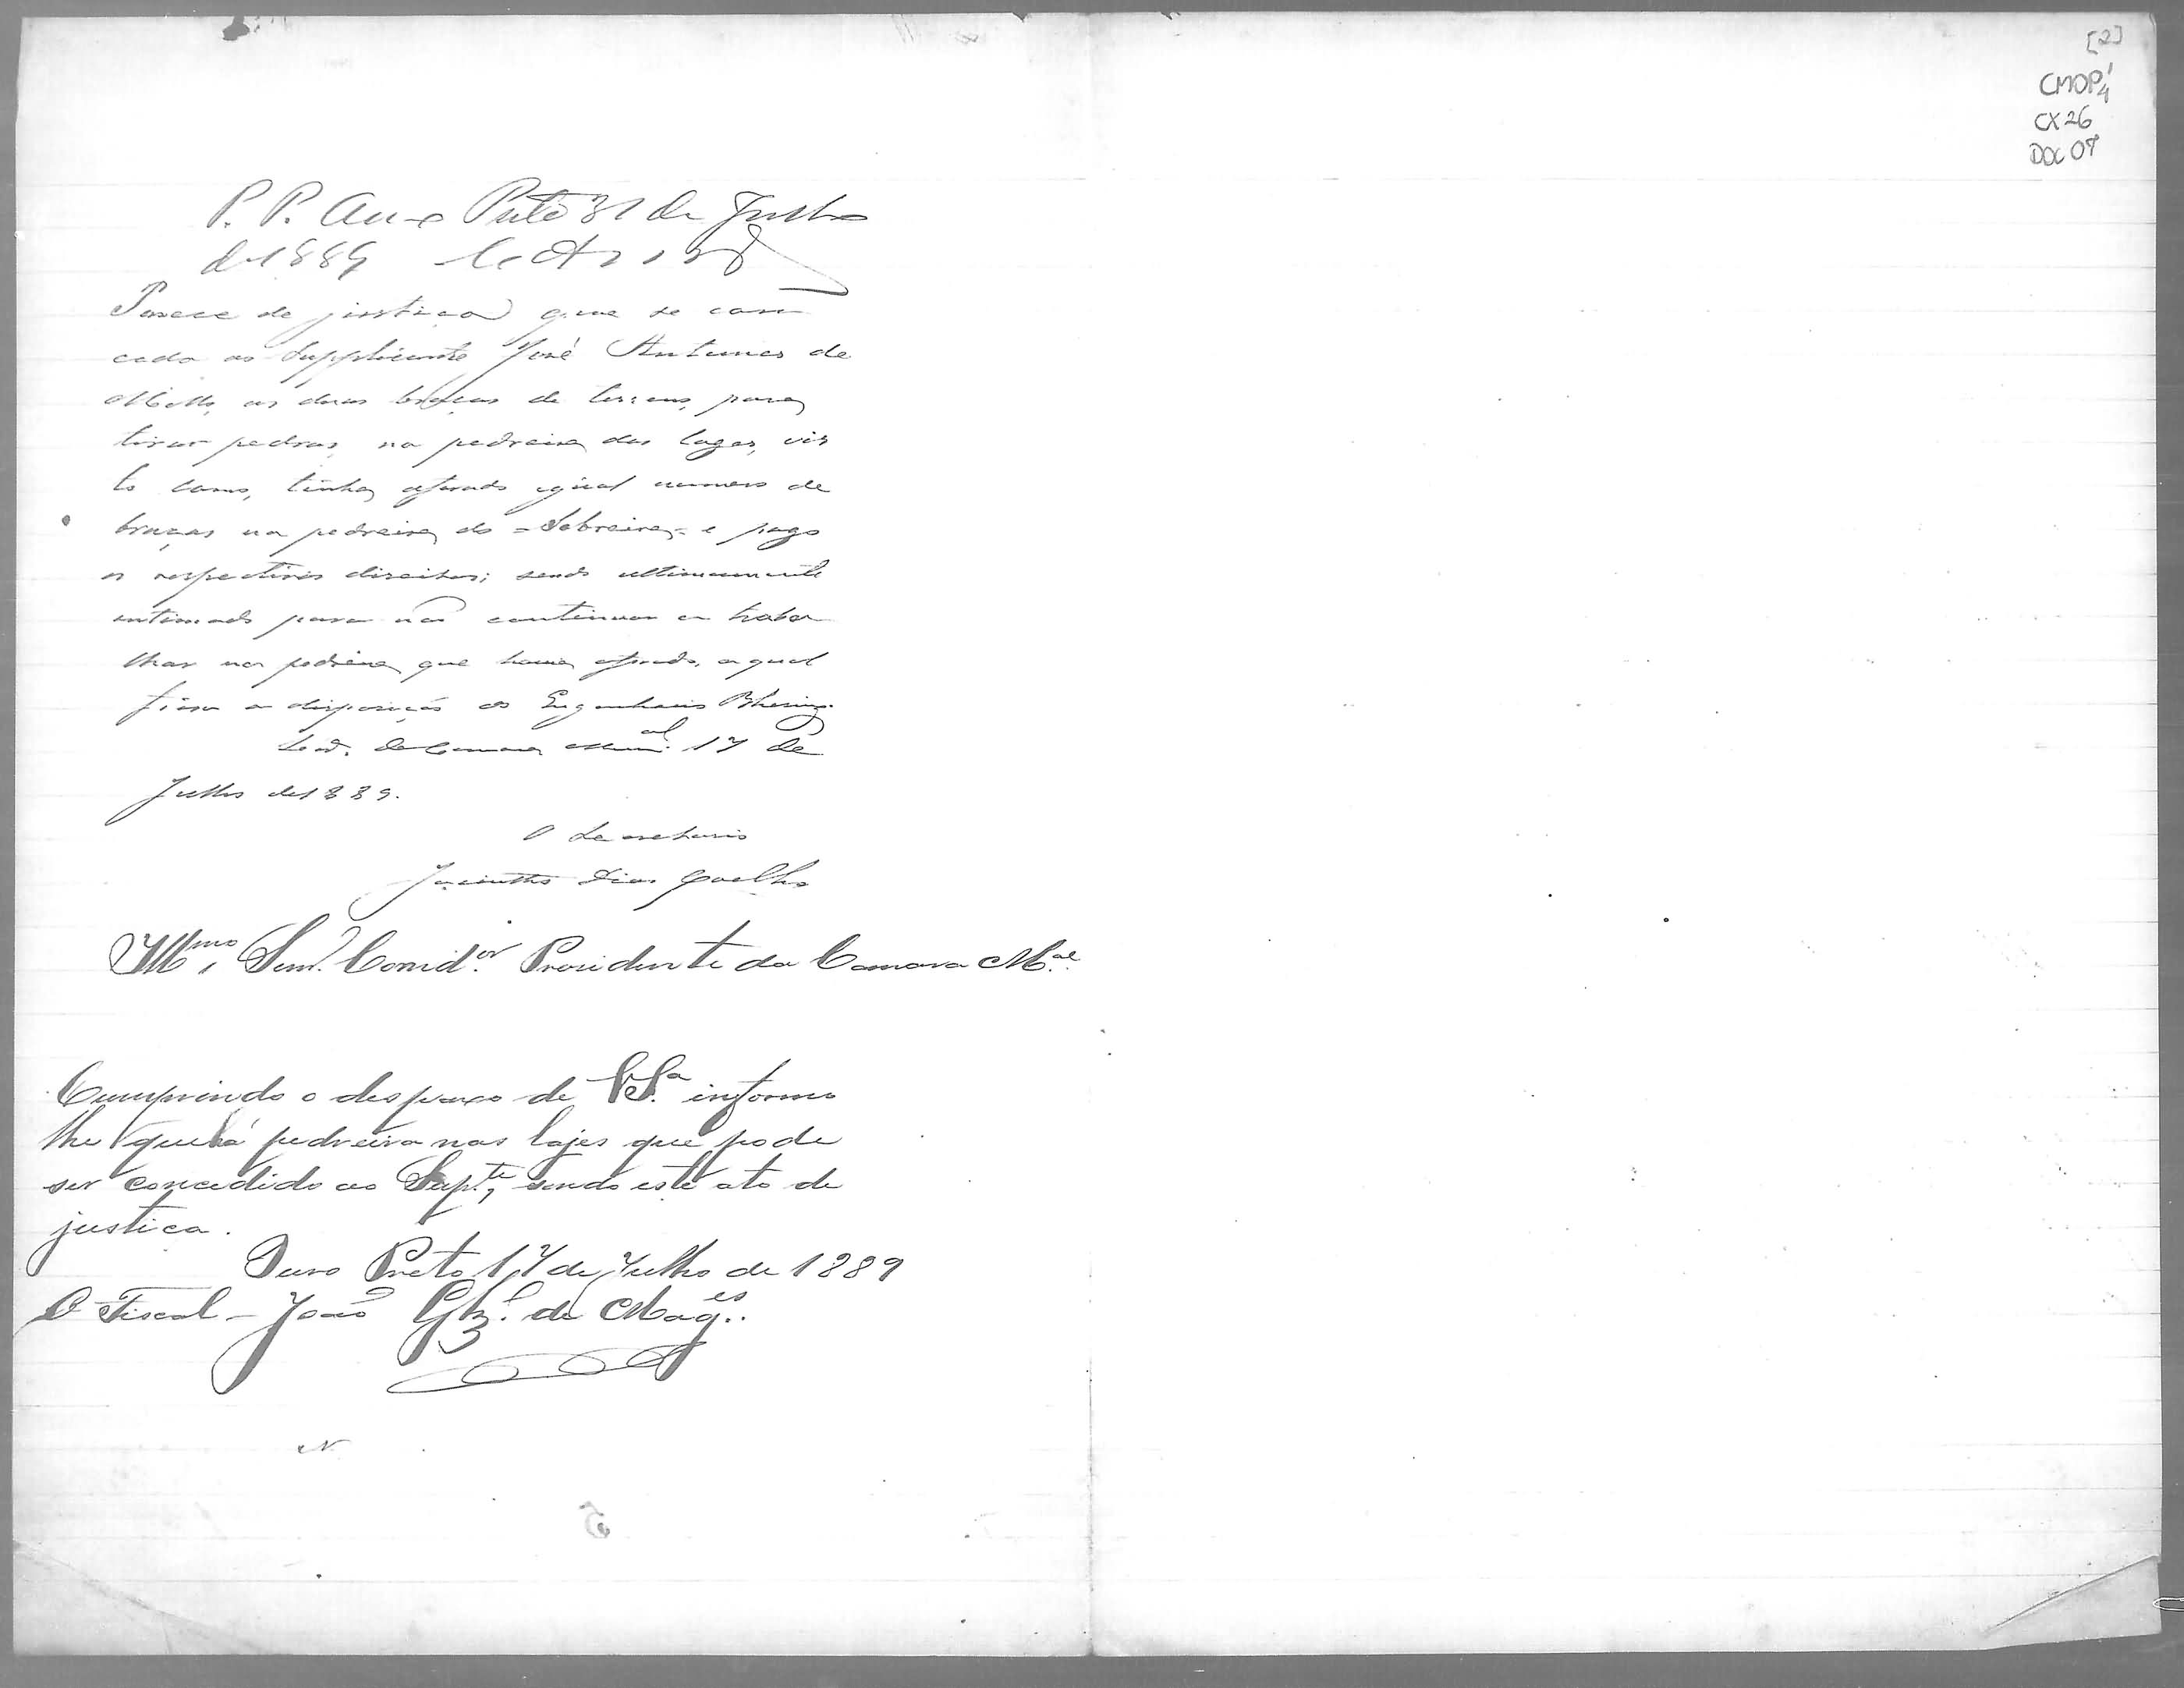 [2]
CMOP 1/4
CX 26
DOC 07
P. P. Ouro Preto 31 de Julho
de 1889
Parece de justiça que se con
ceda ao Supplicante José Antunes de
Mello, as duas braças de terreno, para
tirar pedras, na pedreira das lages, vis
to como, tinha aforado egual numero de
braças na pedreira do = Sobreira = e pago
os respectivos direitos; sendo ultimamente
intimado para não continuar a traba
lhar na pedreira que havia aforado, a qual
fica a disposição do Engenheiro Bhering.
Secr. da Camara Mun.al 17 de
Julho de 1889.
O Secretario
Jacintho Dias Coelho
Illmo, Senr. Corrid.or Presidente da Camara M.al
Cumprindo o despaxo de VSª. informo
lhe que há pedreira nas lajes que pode
ser concedido ao Sup.te, sendo este ato de
justica.
Ouro Preto 17 de Julho de 1889
O Fiscal - João Glz.' de Mag.es